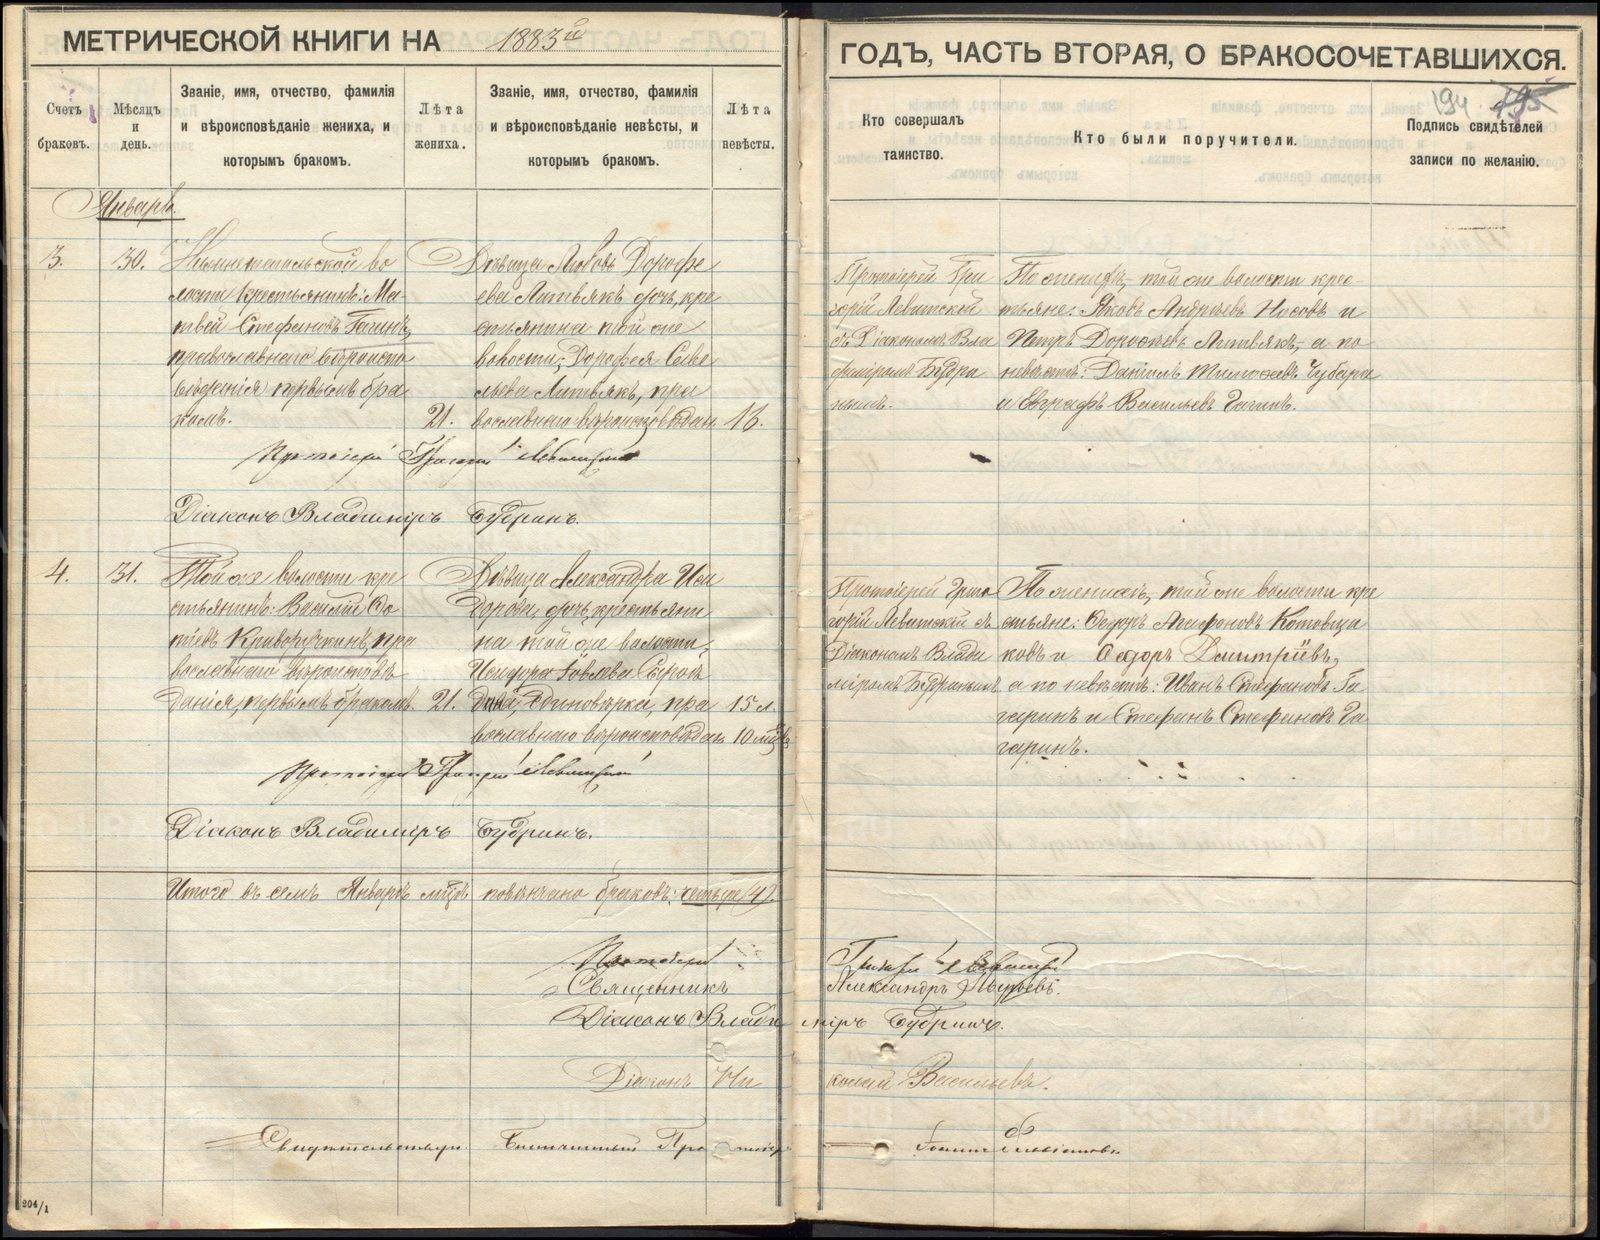 МЕТРИЧЕСКОЙ КНИГИ НА 1883й
ГОДЪ, ЧАСТЬ ВТОРАЯ, О БРАКОСОЧЕТАВШИХСЯ.
194
195
Счетъ
браковъ.
Мѣсяцъ
и
день.
Званіе, имя, отчество, фамилія
и вѣроисповѣданіе жениха, и
которымъ бракомъ.
Лѣта
жениха.
Званіе, имя, отчество, фамилія
и вѣроисповѣданіе невѣсты, и
которымъ бракомъ.
Лѣта
невѣсты.
Кто совершалъ
таинство.
Кто были поручители.
Подпись свидѣтелей
записи по желанію.
Январь.
3.
30.
волости крестьянинъ: Ма-
твей Стефановъ
православнаго вѣроиспо
вѣданія первымъ бра
комъ.
21.
Дѣвица Любовь Дорофе
ева Литвякъ дочь кре
стьянина той же
волости, Дорофея Саве
льева Литвякъ, пра
вославнаго вѣроисповѣдан
16.
Протоіерей Гри
горій Левитскій
съ Діакономъ Вла
диміромъ Будри
нымъ.
По женихѣ, той же волости крес-
тьяне: Яковъ Андреевъ Носовъ и
Петръ Дорофеевъ Литвякъ, а по
невѣстѣ: Даніилъ Тимофеевъ
и Евграфъ Васильевъ
Протоіерей Григорій Левитскій
Діаконъ Владиміръ Будринъ.
4.
31.
Той же волости кре
стьянинъ: Василій Фо
тіевъ Криворучкинъ, пра
вославнаго вѣроисповѣ
данія, первымъ бракомъ.
21.
Дѣвица Александра Иси
дорова, дочь крестьяни
на той же волости,
Исидора
Единовѣрка, пра
вославнаго вѣроисповѣдан
15 л.
10 мѣц.
Протоіерей Григо
горій Левитскій съ
Діакономъ Влади
міромъ Будринымъ
По женихѣ, той же волости кре
стьяне: Федоръ Агафоновъ Котовщи
ковъ и Федоръ Дмитріевъ,
а по невѣстѣ: Иванъ Стефановъ Га
гаринъ и Стефанъ Стефановъ Га
гаринъ.
Протоіерей Григорій Левитскій
Діаконъ Владиміръ Будринъ.
Итого въ семъ Январѣ мѣцѣ повѣнчано браковъ: четыре (4).
Протоіерей Григорій Левитскій
Священникъ Александръ
Діаконъ Владиміръ Будринъ.
Діаконъ Николай Васильевъ.
Свидѣтельствовалъ Благочинный Протоіерей
204/1